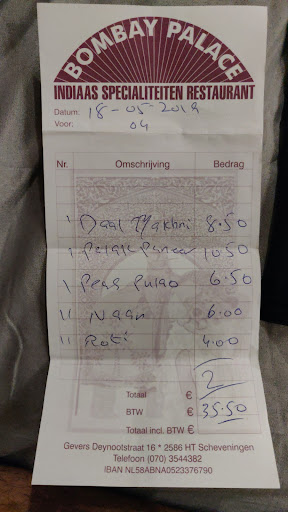 BOMBAY PALACE
INDIAAS SPECIALITEITEN RESTAURANT
Datum: 18-05-2019
Voor: 04
Nr. Omschrijving Bedrag
1 Daal Makhni 8.50
1 Palak Paneer 10.50
1 Peas Pulao 6.50
11 Naan 6.00
11 Roti 4.00
Totaal €
BTW € 35.50
Totaal incl. BTW €
Gevers Deynootstraat 16 * 2586 HT Scheveningen
Telefoon (070) 3544382
IBAN NL58ABNA0523376790